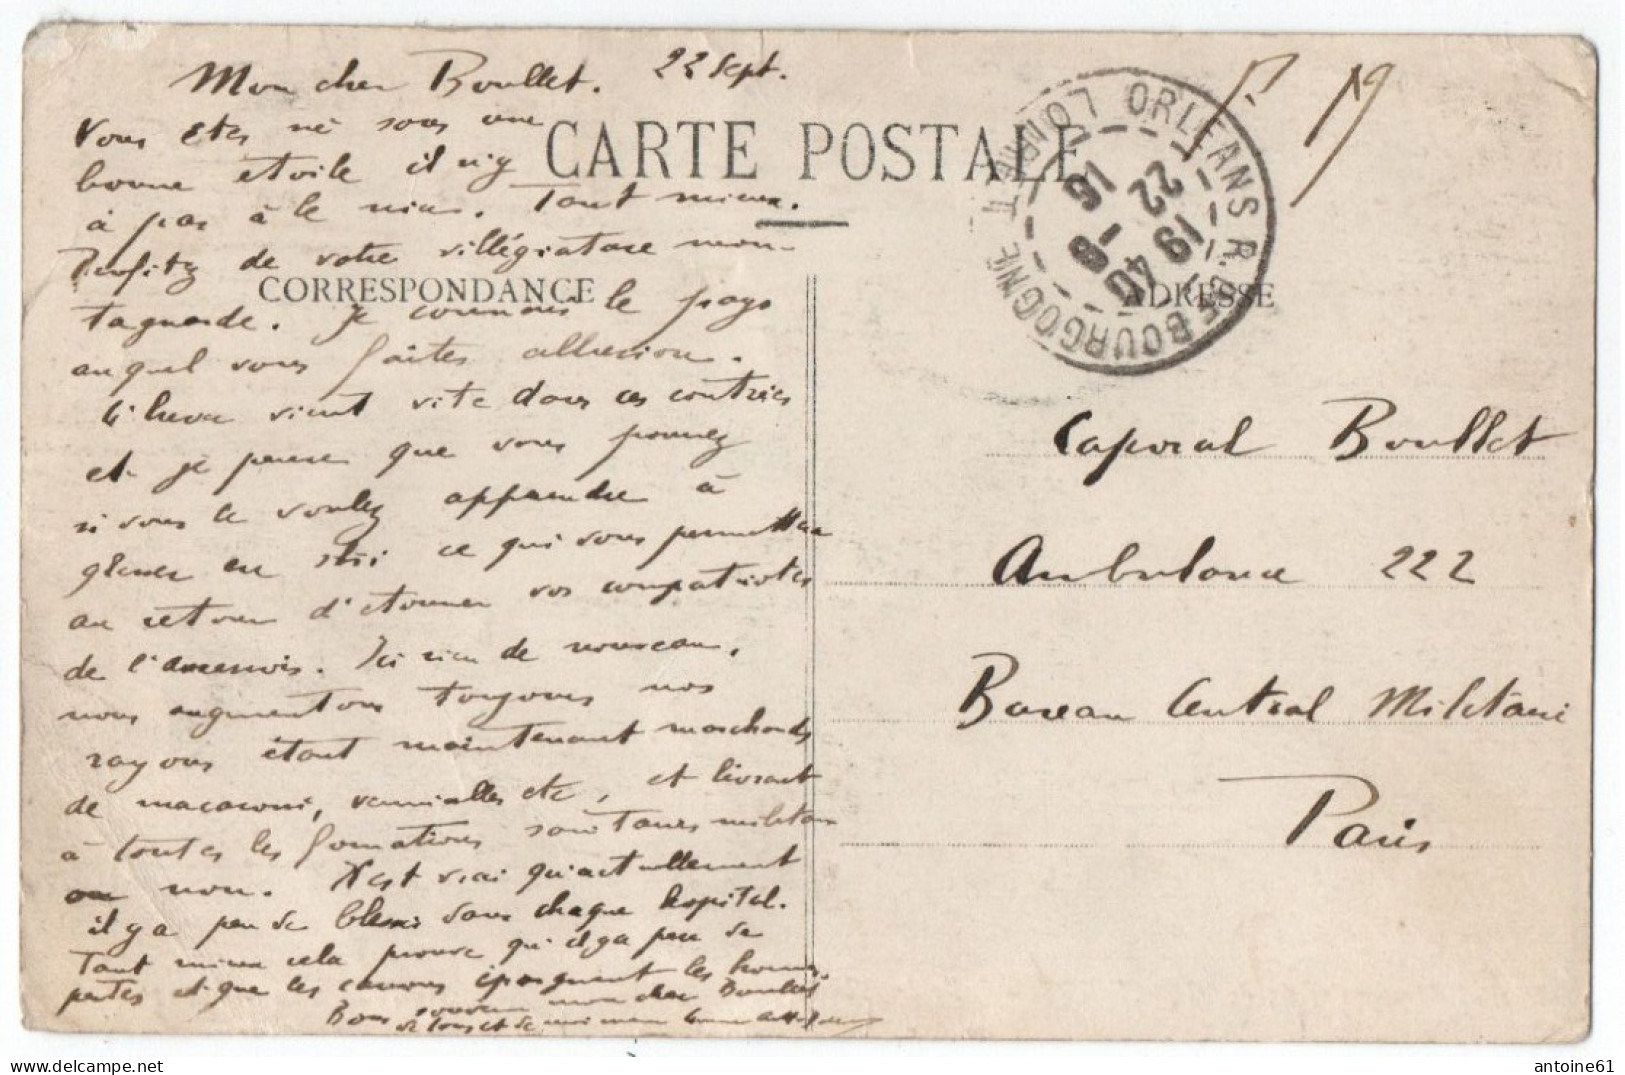 Mon cher Boullet. 22 Sept.
Vous etes né sous une
bonne etoile il n'y
à pas à le nier. Tout mieux.
Profitez de votre villégiature mon-
tagnarde. Je connais le pays
auquel vous faites allusion.
L'hiver vient vite dans ces contrées
et je pense que vous pourrez
si vous le voulez apprendre à
glisser en ski ce qui vous permettra
au retour d'étonner vos compatriotes
de l'. Ici rien de nouveau,
nous augmentons toujours nos
rayons étant maintenant marchands
de macaroni, vermicelles etc, et livrant
à toutes les formations sanitaires militaires
ou non. Il est vrai qu'actuellement
il y a peu de blessés dans chaque hopital.
Tant mieux cela prouve qu'il y a peu de
pertes et que les canons épargnent les hommes.
Bon souvenir mon cher Boullet
de tous et de
CARTE POSTALE
CORRESPONDANCE
ADRESSE
ORLEANS R. DE BOURGOGNE
LOIRET
15
22 - 9
19 40
19
Caporal Boullet
Ambulance 222
Bureau Central Militaire
Paris
antoine61